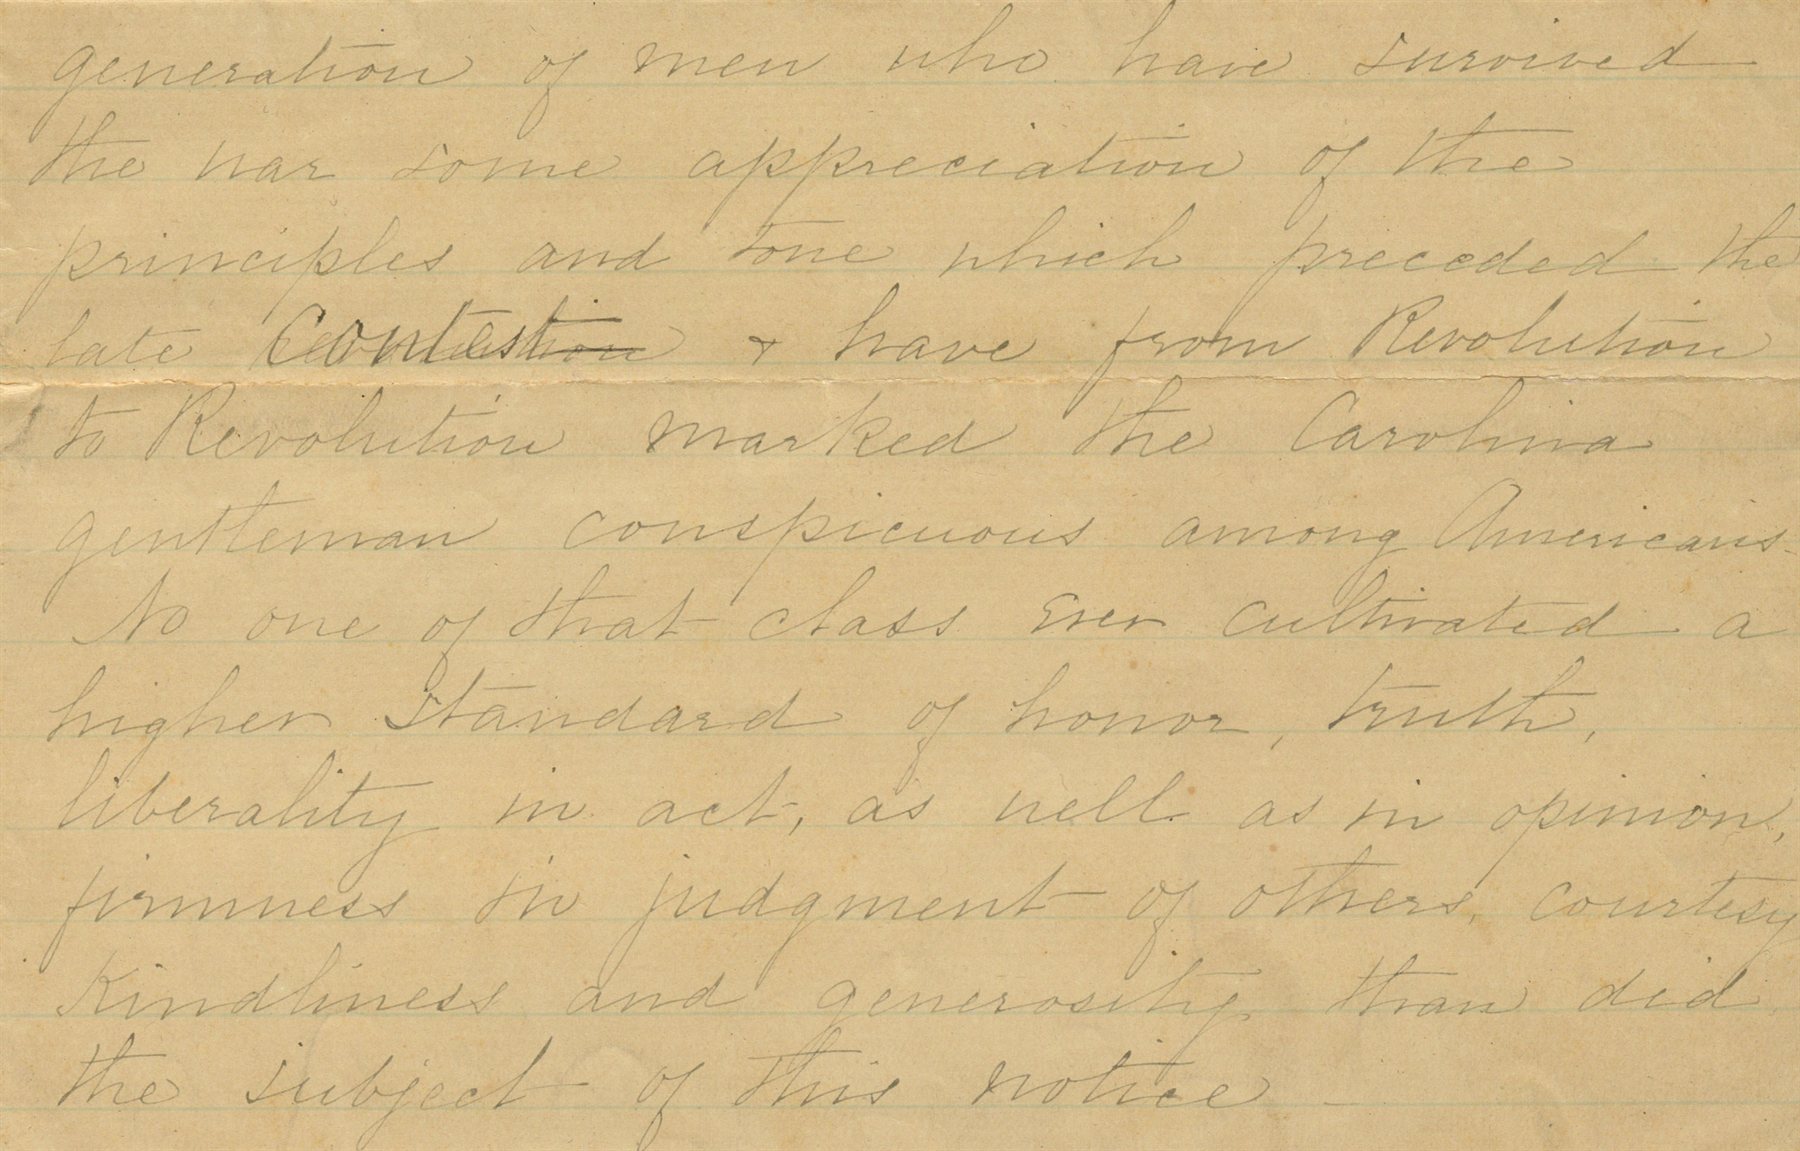 generation of men who have survived
the war some appreciation of the
principles and tone which preceded the
late Contest & have from Revolution
to Revolution marked the Carolina
gentleman conspicuous among Americans.
No one of that class ever cultivated a
higher standard of honor, truth,
liberality in act, as well as in opinion,
firmness in judgment of others, courtesy
Kindliness and generosity than did
the subject of this notice –